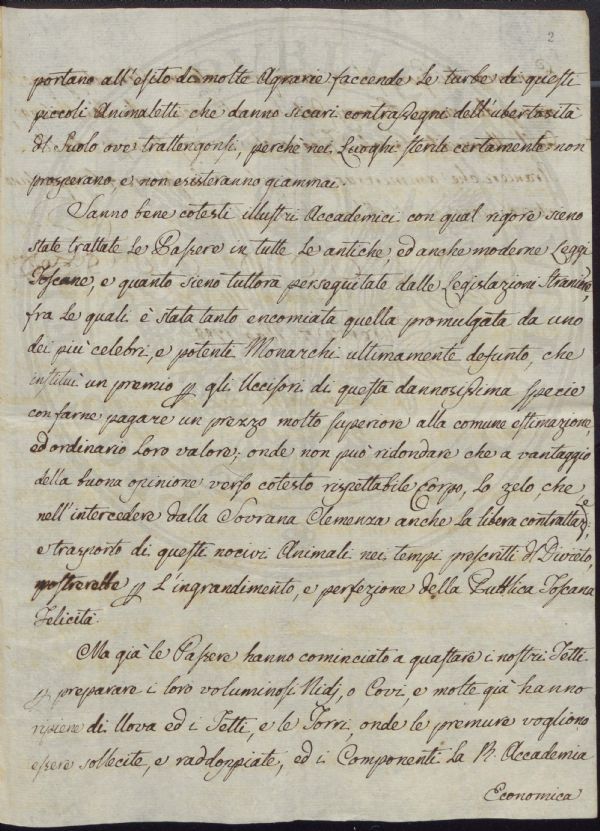 2
portano all'esito di molte Agrarie faccende le turbe di questi
piccoli Animaletti che danno sicari contrassegni dell'ubertosità
del Suolo ove trattengonsi, perchè nei Luoghi sterili certamente non
prosperano, e non esisteranno giammai.
Sanno bene cotesti illustri Accademici con qual rigore sieno
state trattate le Passere in tutte le antiche, ed anche moderne Leggi
Toscane, e quanto sieno tuttora perseguitate dalle Legislazioni Straniere,
fra le quali è stata tanto encomiata quella promulgata da uno
dei più celebri, e potenti Monarchi ultimamente defunto, che
instituì un premio p gli Uccisori di questa dannosissima specie
con farne pagare un prezzo molto superiore alla comune estimazione,
ed ordinario loro valore; onde non può ridondare che a vantaggio
della buona opinione verso cotesto rispettabile Corpo, lo zelo, che
nell'intercedere dalla Sovrana Clemenza anche la libera contrattaz.e,
e trasporto di questi nocivi Animali nei tempi prescritti di Divieto,
mostrerebbe p l'ingrandimento, e perfezione della Pubblica Toscana
Felicità.
Ma già le Passere hanno cominciato a guastare i nostri Tetti
p preparare i loro voluminosi Nidj, o Covi, e molte già hanno
ripiene di Uova ed i Tetti, e le Torri, onde le premure vogliono
essere sollecite, e raddoppiate, ed i Componenti la R. Accademia
Economica